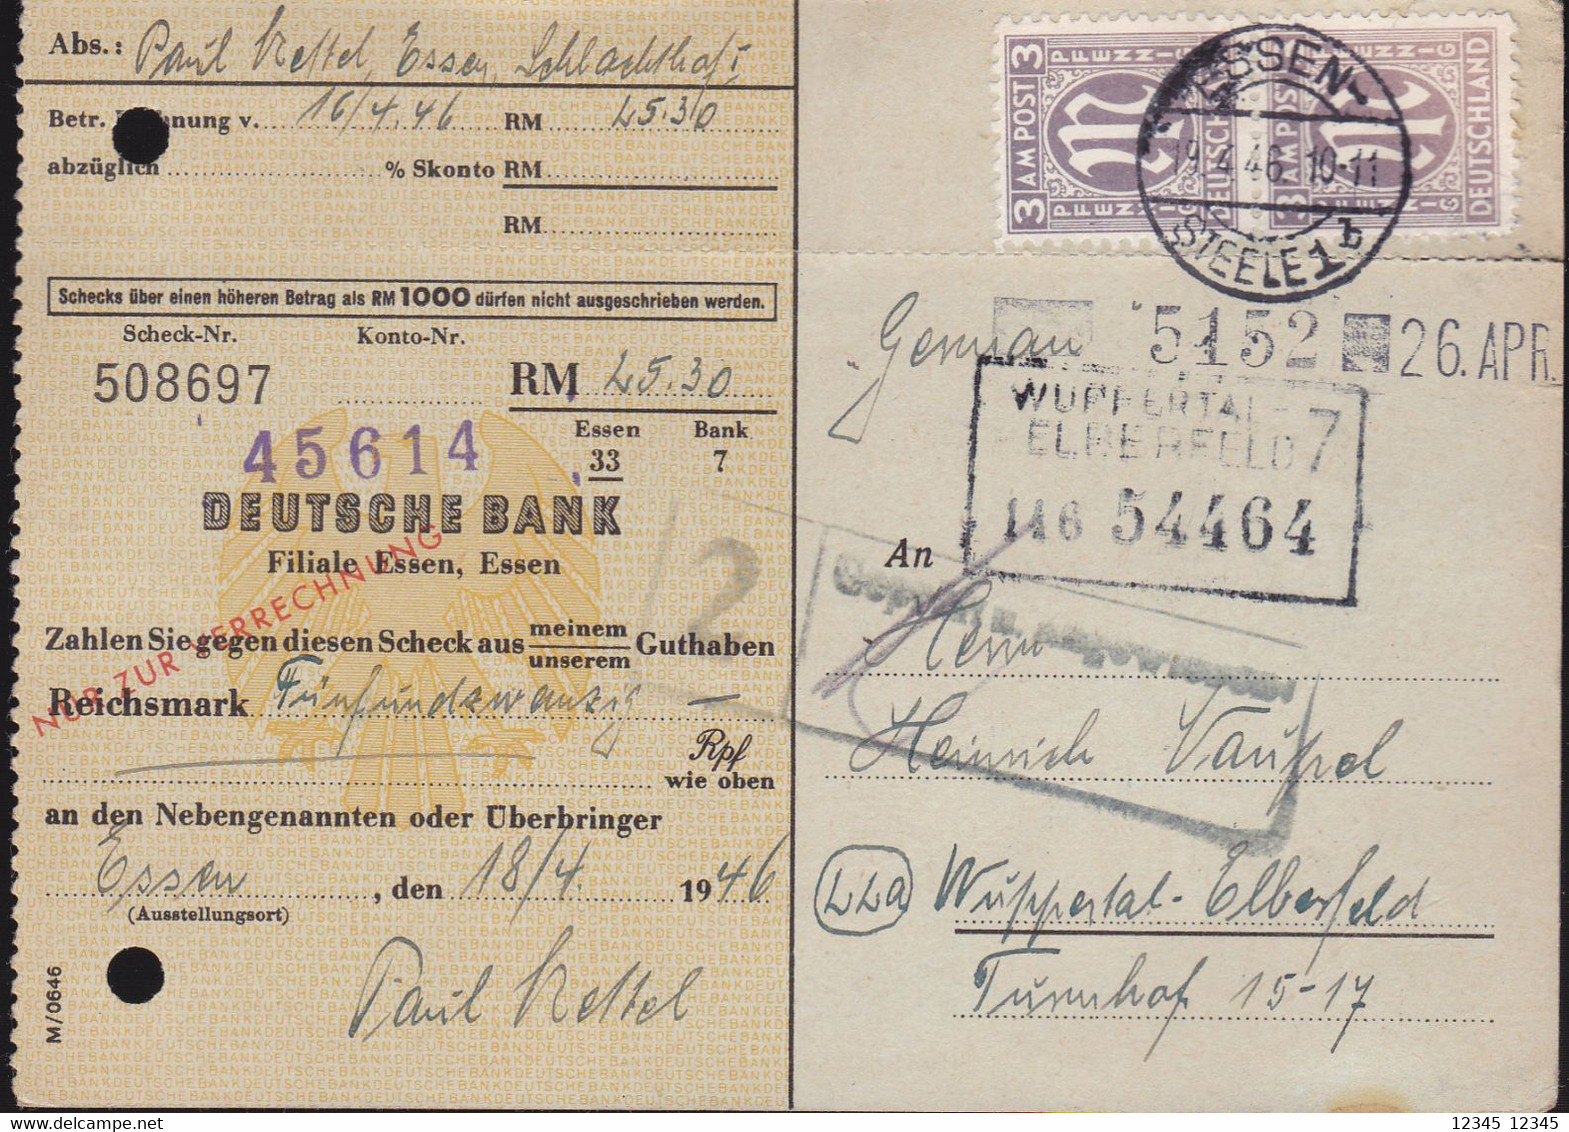 Abs.: Paul Nettel, Essen, Schlachthof
Betr. Rechnung v. 16/4.46 RM 25.30
abzüglich % Skonto RM
RM
Schecks über einen höheren Betrag als RM 1000 dürfen nicht ausgeschrieben werden.
Scheck-Nr. Konto-Nr.
508697 RM 25.30
45614
Essen Bank
33 7
DEUTSCHE BANK
Filiale Essen, Essen
NUR ZUR VERRECHNUNG
Zahlen Sie gegen diesen Scheck aus meinem
unserem Guthaben
Reichsmark Fünfundzwanzig —
Rpf
wie oben
an den Nebengenannten oder Überbringer
Essen, den 18/4. 1946
(Ausstellungsort)
Paul Nettel
M/0646
3 AM POST 3
PFENNIG
PFENNIG
DEUTSCHLAND
3 AM POST
PFENNIG
PFENNIG
DEUTSCHLAND
ESSEN-
19.4.46. 10-11
STEELE 1 b
German
5152 26. APR.
WUPPERTAL-
ELBERFELD 7
146 54464
2
An
Herrn
Heinrich Vaupel
22a Wuppertal-Elberfeld
Turnhof 15-17
12345 12345